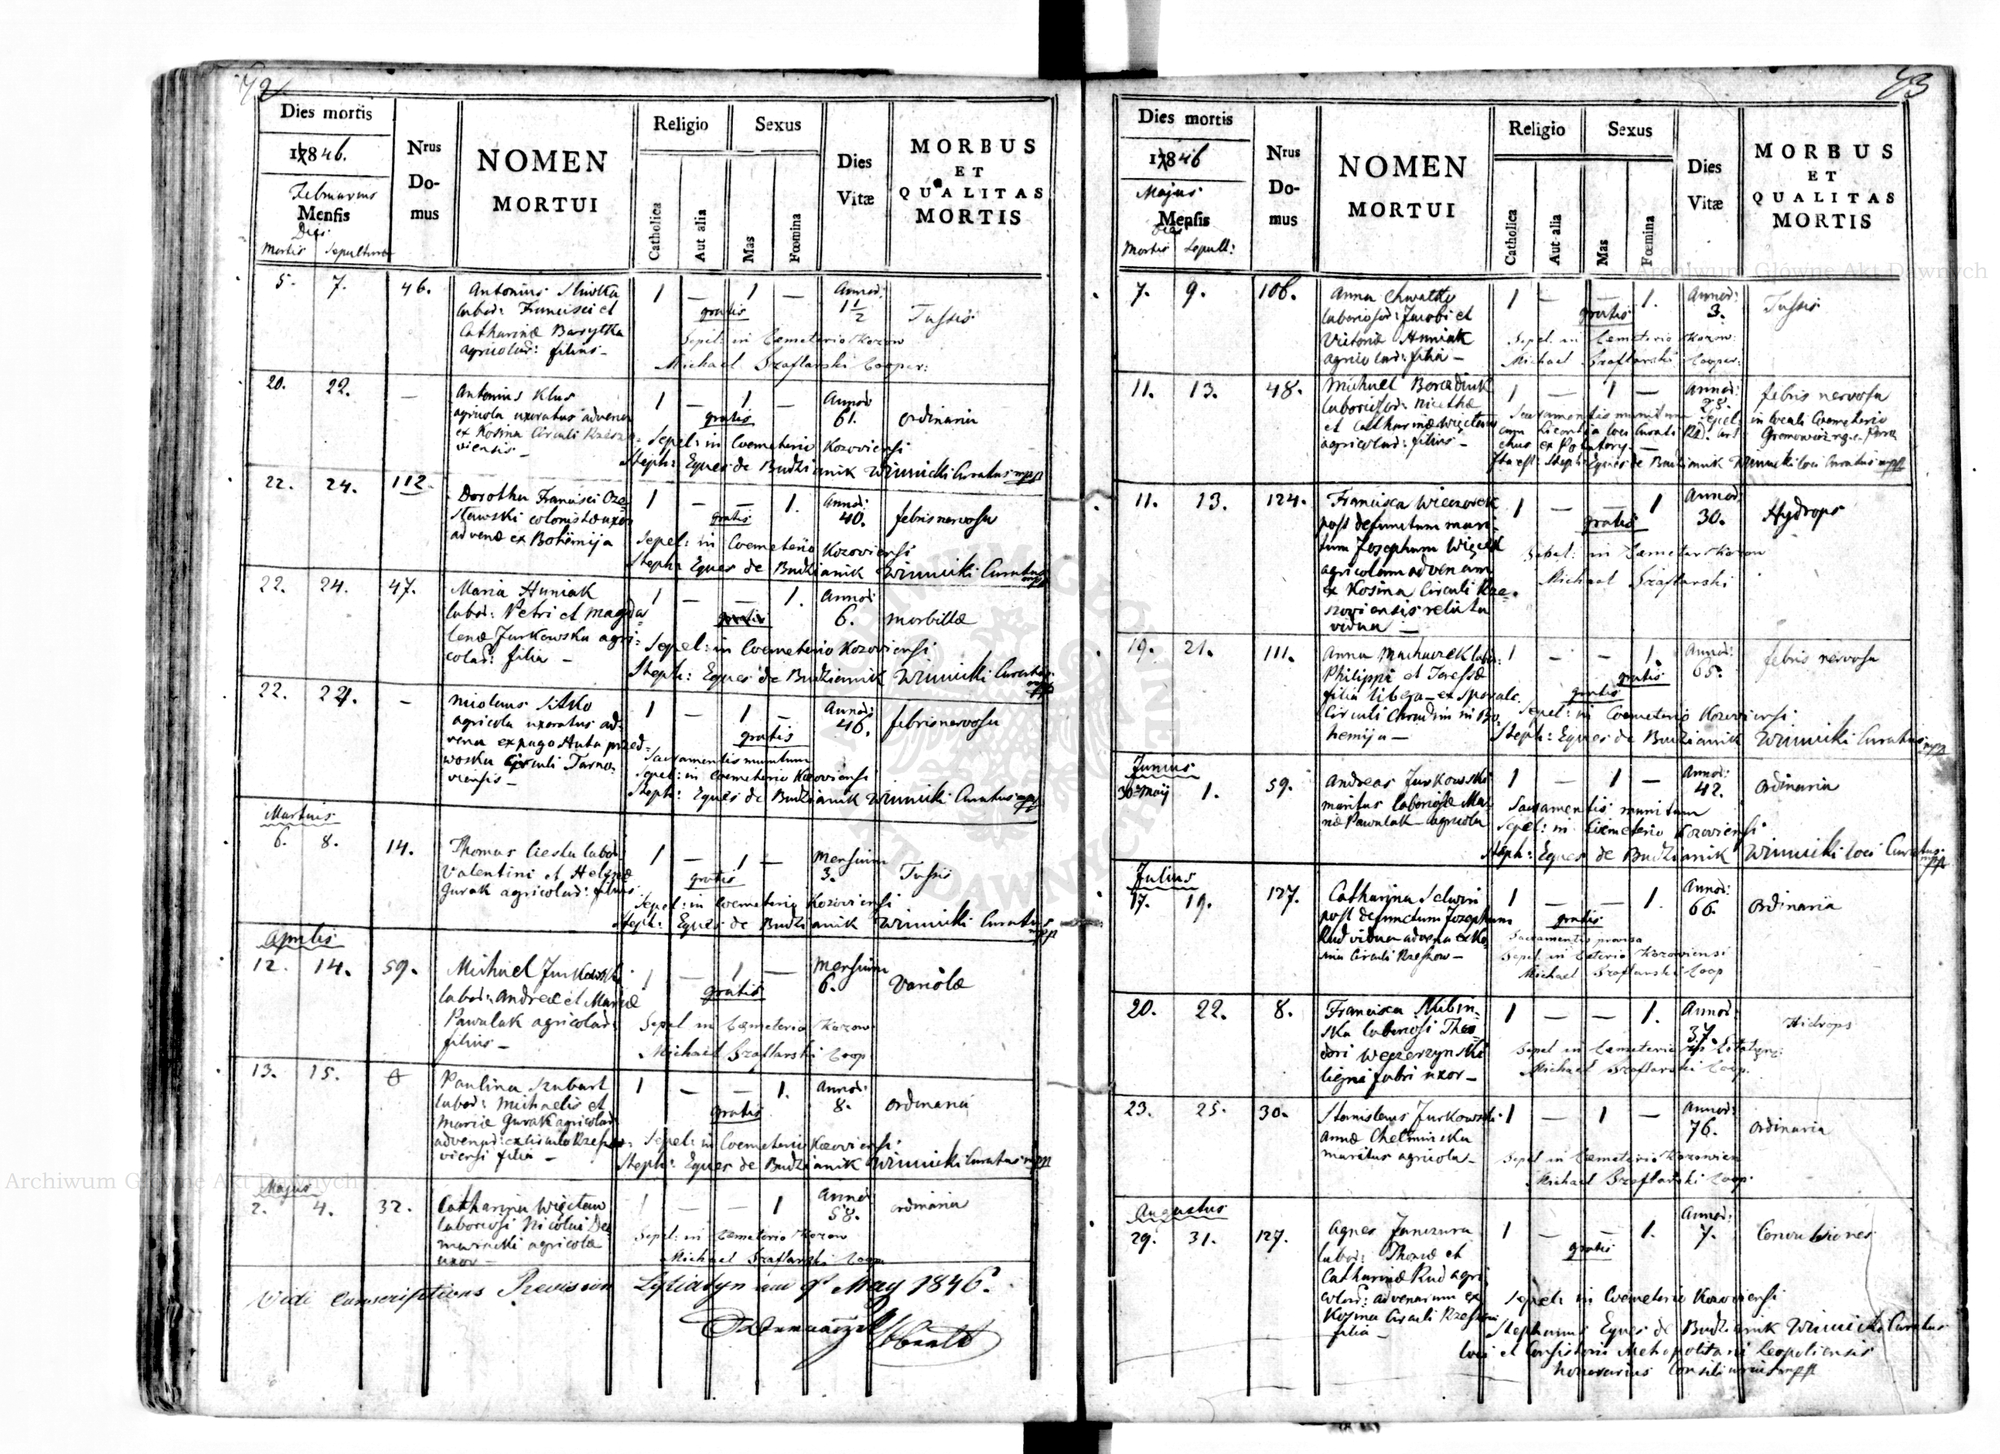 72
Dies mortis
1846.
Februarius
Mensis
Dies
Mortis Sepulturae
Nrus
Do-
mus
NOMEN
MORTUI
Religio
Catholica
Aut alia
Sexus
Mas
Fœmina
Dies
Vitæ
MORBUS
ET
QUALITAS
MORTIS
5. 7. 46.
Antonius
labor: Francisci et
Catharinæ
agricolar: filius –
1 – 1 –
gratis
Annor:
1 1/2
Tussis
Sepel: in Cæmeterio Kozow
Michael Szaflarski Cooper:
20. 22. –
Antonius Klus
agricola uxoratus advena
ex Kosina Circuli Rzeszo-
viensis –
1 – 1 –
gratis
Annor
61.
ordinaria
Sepel: in Coemeterio Kozoviensi
Steph: Eques de Budzianik Winnicki Curatus mpp
22. 24. 112.
Dorothea Francisci
colonistæ uxor
advenæ ex Bohemija
1 – – 1.
gratis
Annor:
40.
febris nervosa
Sepel: in Coemeterio Kozoviensi
Steph: Eques de Budzianik Winnicki Curatus mpp
22. 24. 47.
Maria Huniak
labor: Petri et Magda-
lenæ Jurkowska agri-
colar: filia –
1 – – 1.
gratis
Annor
6.
morbillæ
Sepel: in Coemeterio Kozoviensi
Steph: Eques de Budzianik Winnicki Curatus mpp
22. 24. –
Nicolaus Sitko
agricola uxoratus ad-
vena ex pago Huta przed-
Circuli Tarno-
viensis –
1 – 1 –
gratis
Annor:
46.
febris nervosa
Sacramentis munitum
Sepel: in Coemeterio Kozoviensi
Steph: Eques de Budzianik Winnicki Curatus mpp
Martius
6. 8. 14.
Thomas Ciesla labor:
Valentini et
Gurak agricolar: filius
1 – 1 –
gratis
Mensium
3.
Tussis
Sepel: in Coemeterio Kozoviensi
Steph: Eques de Budzianik Winnicki Curatus mpp
Aprilis
12. 14. 59.
Michael Jurkowski
labor: Andreæ et Mariæ
Pawulak agricolar:
filius –
1 – 1 –
gratis
Mensium
6.
Variolæ
Sepel in Cæmeterio Kozow
Michael Szaflarski Coop
13. 15.
Paulina Szubart
labor: Michaelis et
Mariæ Gurak agricolar:
advenar: ex Circulo Rzeszo-
viensi filia –
1 – – 1.
gratis
Annor:
8.
ordinaria
Sepel: in Coemeterio Kozoviensi
Steph: Eques de Budzianik Winnicki Curatus mpp
Majus
2. 4. 32.
Catharina Więctaw
laboriosi Nicolai
agricolæ
uxor –
1 – – 1
Annor
58.
ordinaria
Sepel: in Cæmeterio Kozow
Michael Szaflarski Coop
Vidi Conscriptions Revision May 1846.
73
Dies mortis
1846
Majus
Mensis
Dies
Mortis Sepult:
Nrus
Do-
mus
NOMEN
MORTUI
Religio
Catholica
Aut alia
Sexus
Mas
Fœmina
Dies
Vitæ
MORBUS
ET
QUALITAS
MORTIS
7. 9. 106.
Anna
laboriosor: Jacobi et
Victoriæ Huniak
agricolar: filia –
1 – – 1.
gratis
Annor:
3.
Tussis
Sepel: in Cæmeterio Kozow:
Michael Szaflarski Cooper:
11. 13. 48.
Michael
laboriosor:
et Catharinæ Więctaw
agricolar: filius –
1 – 1 –
Annor:
febris nervosa
Sacramentis munitum Sepel: in locali Coemeterio
cum Licentia loci Curati
Steph: Eques de Budzianik Winnicki loci Curatus mpp
11. 13. 124.
Francisca Wieczorek
post defunctum mari-
tum Josephum
agricolam advenam
ex Kosina Circuli Rze-
szoviensis relicta
vidua –
1 – – 1
gratis
Annor:
30.
Hydrops
Sepel: in Cæmeter Kozow
Michael Szaflarski
19. 21. 111.
Anna Machaczek labor:
Philippi et Teresiæ
filia libera – ex
Circuli Chrudim in Bo-
hemija –
1 – – 1.
gratis
gratis
Annor:
65.
febris nervosa
Sepel: in Coemeterio Kozoviensi
Steph: Eques de Budzianik Winnicki Curatus mpp
Junius
30 Maij 1. 59.
Andreas Jurkowski
maritus laboriosæ Ma-
riæ Pawulak – agricola
1 – 1 –
Annor:
42.
ordinaria
Sacramentis munitum
Sepel: in Coemeterio Kozoviensi
Steph: Eques de Budzianik Winnicki loci Curatus mpp
Julius
17. 19. 127.
Catharina
post defunctum Josephum
Rud vidua advena ex Ko-
sina Circuli Rzeszow –
1 – – 1.
gratis
Annor:
66.
ordinaria
Sacramentis provisa
Sepel: in Kozoviensi
Michael Szaflarski Coop
20. 22. 8.
Francisca Skibin-
ska laboriosi Theo-
dori
ligni fabri uxor –
1 – – 1.
Annor:
37.
Hidrops
Sepel in Cæmeterio
Michael Szaflarski Coop.
23. 25. 30.
Stanislaus Jurkowski
Annæ Chelminska
maritus agricola –
1 – 1 –
Annor:
76.
ordinaria
Sepel in Cæmeterio Kozowien
Michael Szaflarski Coop.
Augustus
29. 31. 127.
Agnes Janczura
labor: Thomæ et
Catharinæ Rud agri-
color: advenarum ex
Kosina Circuli Rzeszovi
filia –
1 – – 1.
gratis
Annor:
7.
Convulsiones
Sepel: in Coemeterio Kozoviensi
Stephanus Eques de Budzianik Winnicki Curatus
loci et Consistorii Metropolitani Leopoliensis
honorarius Consiliarius mpp
Archiwum Główne Akt Dawnych
Archiwum Główne Akt Dawnych
ARCHIWUM GŁÓWNE AKT DAWNYCH